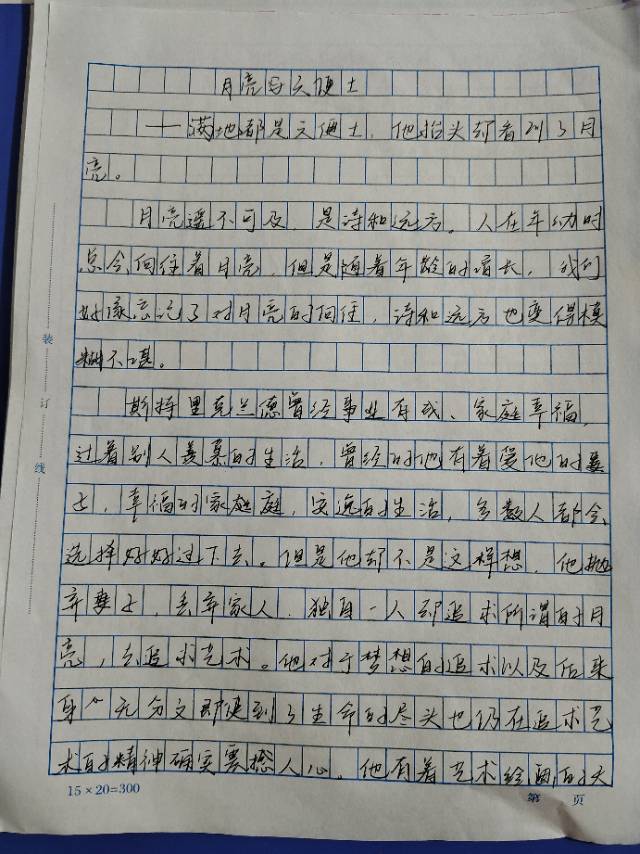 月亮与六便士
——满地都是六便士，他抬头却看到了月
亮。
月亮遥不可及，是诗和远方。人在年幼时
总会向往着月亮，但是随着年龄的增长，我们
好像忘记了对月亮的向往，诗和远方也变得模
糊不堪。
斯特里克兰德曾经事业有成、家庭幸福，
过着别人羡慕的生活，曾经的他有着爱他的妻
子，幸福的家庭，安逸的生活，多数人都会
选择好好过下去。但是他却不是这样想，他抛
弃妻子，丢弃家人，独自一人却追求所谓的月
亮，去追求艺术。他对于梦想的追求以及后来
身 无分文 到了生命的尽头也仍在追求艺
术的精神确实震撼人心。他有着艺术绘画的天
装
订
线
15×20=300
第 页